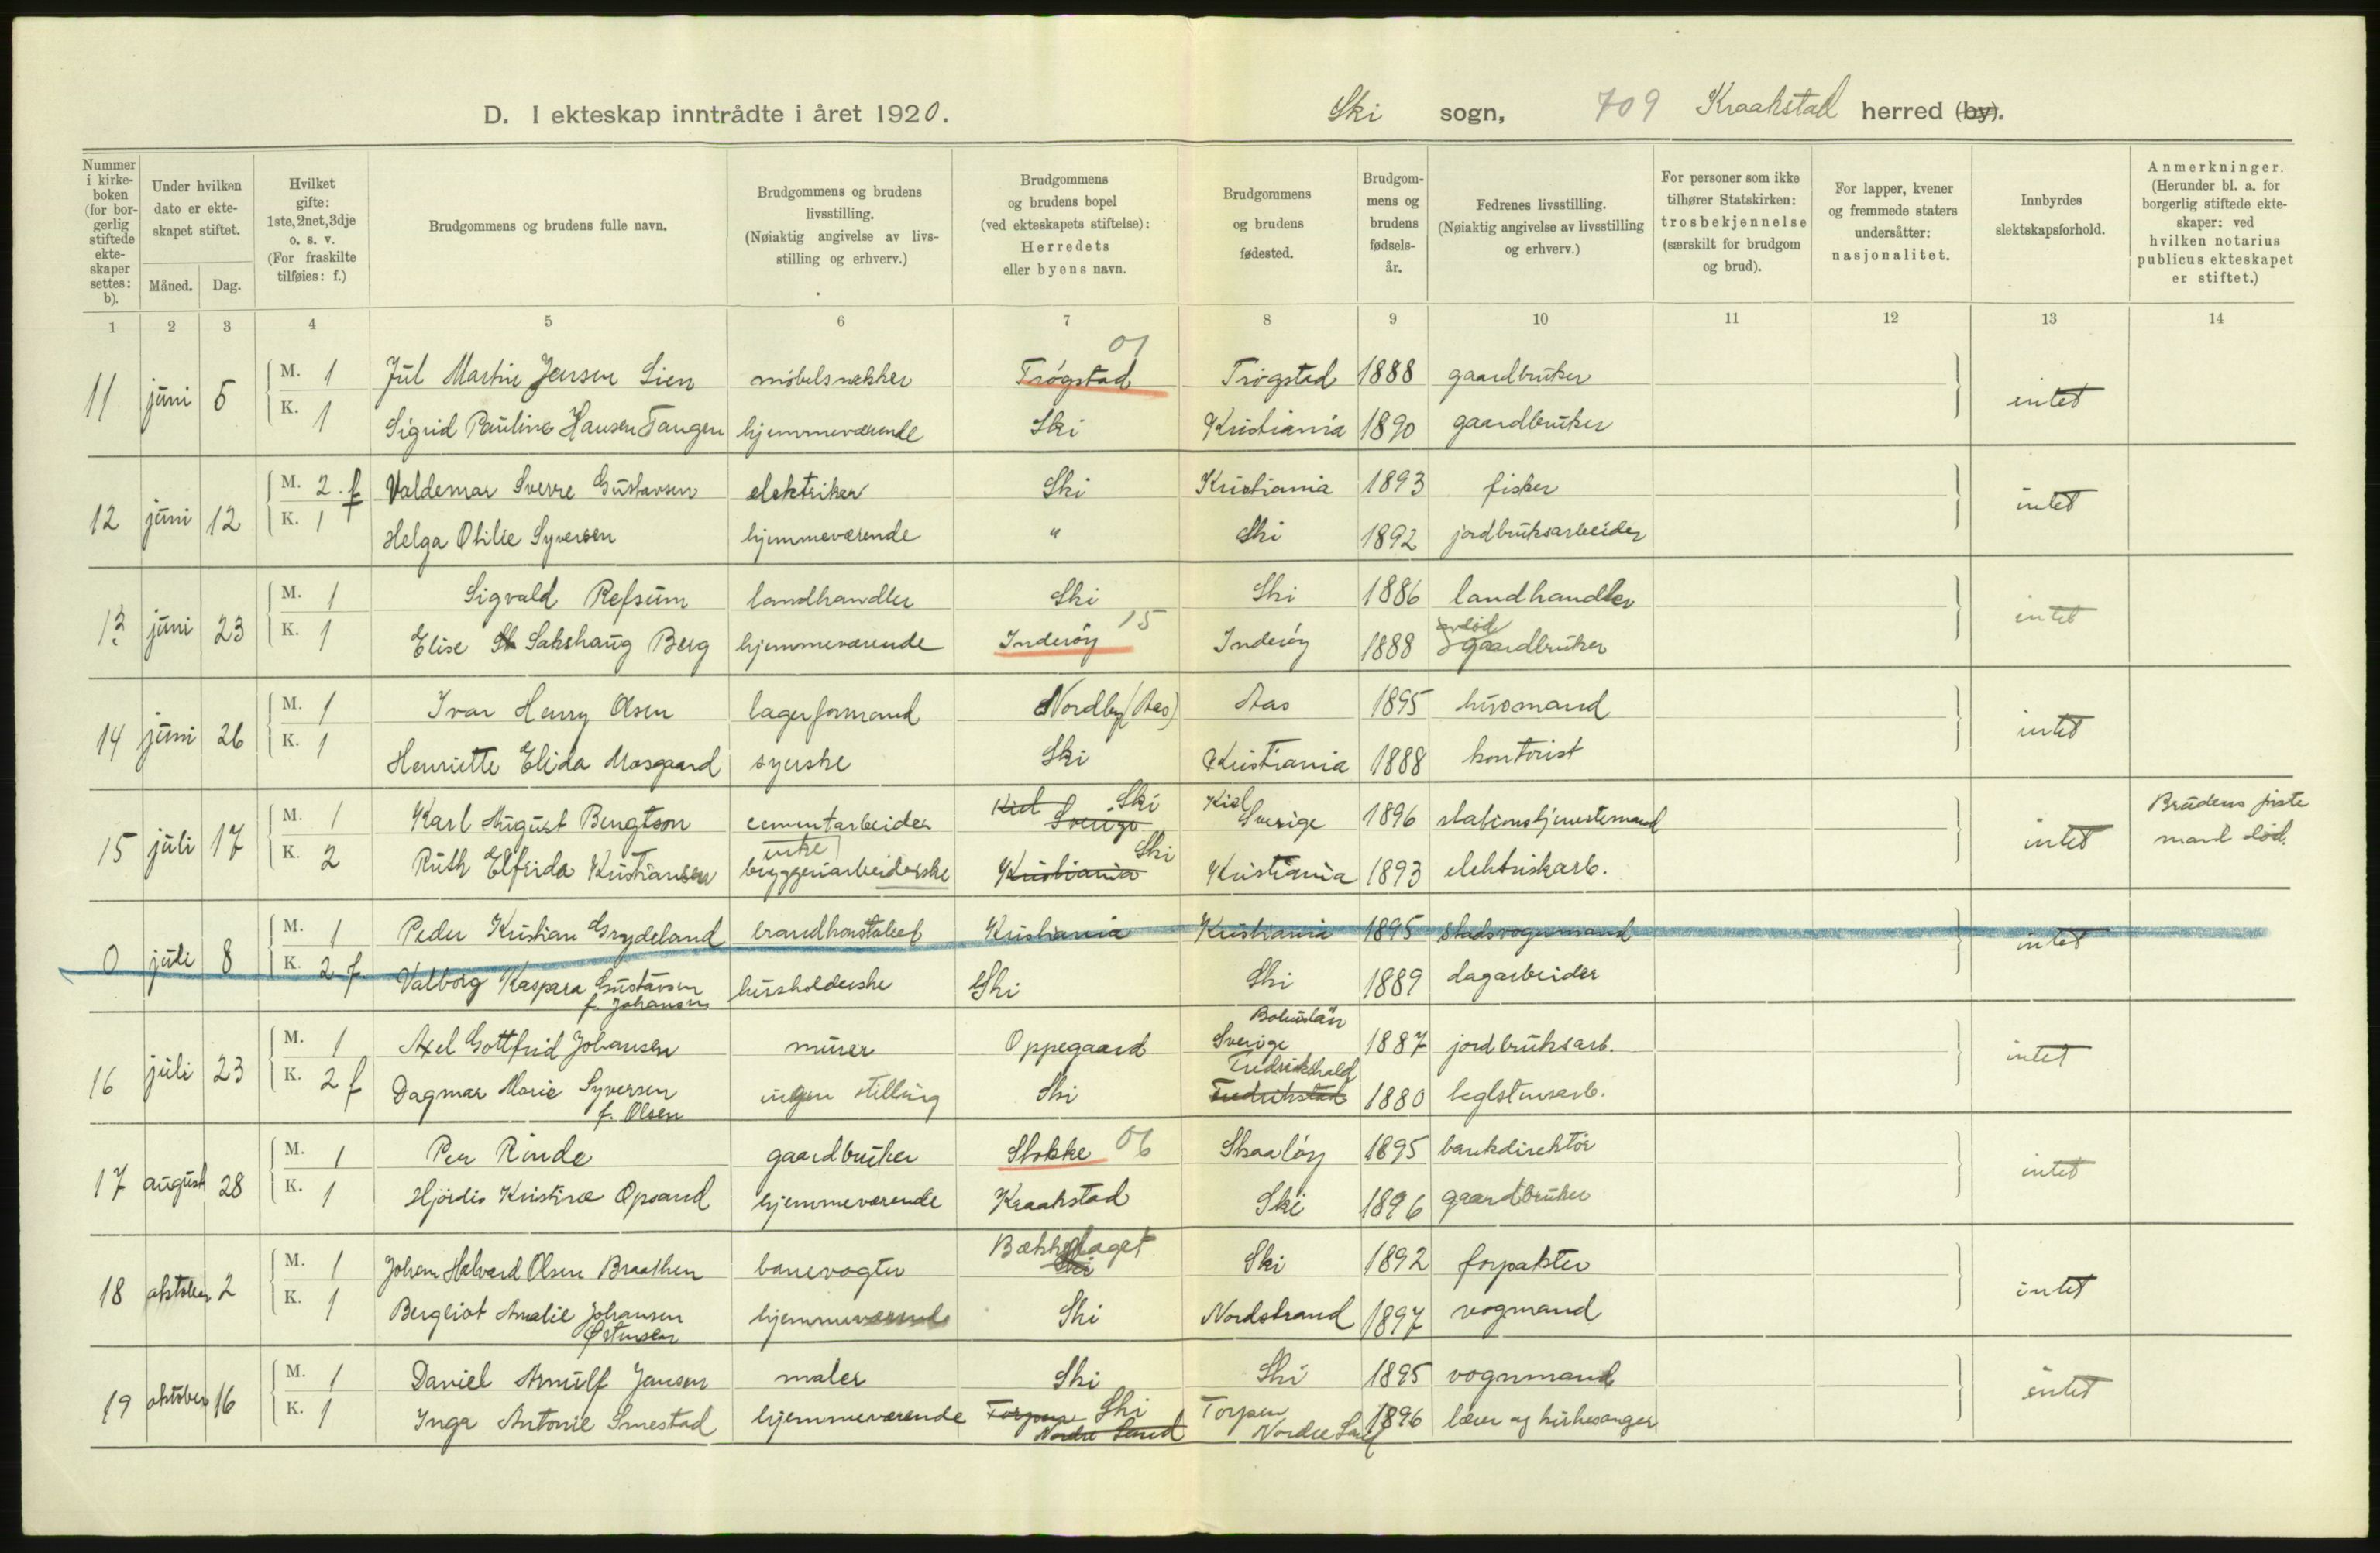 D. I ekteskap inntrådte i året 1920.
Ski sogn, 709 Kraakstad herred (by).
Nummer i kirkeboken (for borgerlig stiftede ekteskaper settes: b).
Under hvilken dato er ekteskapet stiftet.
Måned. Dag.
Hvilket gifte: 1ste, 2net, 3dje o. s. v. (For fraskilte tilføies: f.)
Brudgommens og brudens fulle navn.
Brudgommens og brudens livsstilling. (Nøiaktig angivelse av livsstilling og erhverv.)
Brudgommens og brudens bopel (ved ekteskapets stiftelse): Herredets eller byens navn.
Brudgommens og brudens fødested.
Brudgommens og brudens fødselsår.
Fedrenes livsstilling. (Nøiaktig angivelse av livsstilling og erhverv.)
For personer som ikke tilhører Statskirken: trosbekjennelse (særskilt for brudgom og brud).
For lapper, kvener og fremmede staters undersåtter: nasjonalitet.
Innbyrdes slektskapsforhold.
Anmerkninger. (Herunder bl. a. for borgerlig stiftede ekteskaper: ved hvilken notarius publicus ekteskapet er stiftet.)
1 2 3 4 5 6 7 8 9 10 11 12 13 14
11 juni 5 M. 1 Jul Martin Jensen Lien møbelsnekker Trøgstad 01 Trøgstad 1888 gaardbruker intet
K. 1 Sigrid Pauline Hansen Tangen hjemmeværende Ski Kristiania 1890 gaardbruker
12 juni 12 M. 2. f Valdemar Sverre Gustavsen elektriker Ski Kristiania 1893 fisker intet
K. 1 Helga Otilie Syversen hjemmeværende " Ski 1892 jordbruksarbeider
13 juni 23 M. 1 Sigvald Refsum landhandler Ski Ski 1886 landhandler intet
K. 1 Elise Sakshaug Berg hjemmeværende Inderøy 15 Inderøy 1888 avdød gaardbruker
14 juni 26 M. 1 Ivar Henry Olsen lagerformand Nordby (Aas) Aas 1895 husmand intet
K. 1 Henriette Elida Mosgaard syerske Ski Kristiania 1888 kontorist
15 juli 17 M. 1 Karl August Bengtson cementarbeider Kiel Sverige Ski Kiel Sverige 1896 stationstjenestemand intet Brudens første mand død.
K. 2 Ruth Elfrida Kristiansen enke bryggeriarbeiderske Kristiania Ski Kristiania 1893 elektriskarb.
0 juli 8 M. 1 Peder Kristian Grydeland brandkonstabel Kristiania Kristiania 1895 stadsvognmand intet
K. 2 f. Valborg Kaspara Gustavsen f. Johansen husholderske Ski Ski 1889 dagarbeider
16 juli 23 M. 1 Axel Gottfrid Johansen murer Oppegaard Bohuslän Sverige 1887 jordbruksarb. intet
K. 2 f Dagmar Marie Syversen f. Olsen ingen stilling Ski Fredrikshald Fredrikstad 1880 teglstensarb.
17 august 28 M. 1 Per Rinde gaardbruker Stokke 06 Skaaløy 1895 bankdirektør intet
K. 1 Hjørdis Kristine Opsand hjemmeværende Kraakstad Ski 1896 gaardbruker
18 oktober 2 M. 1 Johan Halvard Olsen Braathen banevogter Bækkelaget Ski Ski 1892 forpakter intet
K. 1 Bergliot Amalie Johansen Østensen hjemmeværende Ski Nordstrand 1897 vogmand
19 oktober 16 M. 1 Daniel Arnulf Jensen maler Ski Ski 1895 vognmand intet
K. 1 Inga Antonie Smestad hjemmeværende Torpen Nordre Land Ski Torpen Nordre Land 1896 lærer og kirkesanger